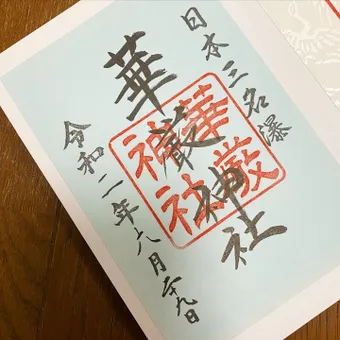 日本三名瀑
華厳神社
華厳神社
令和二年八月二十九日